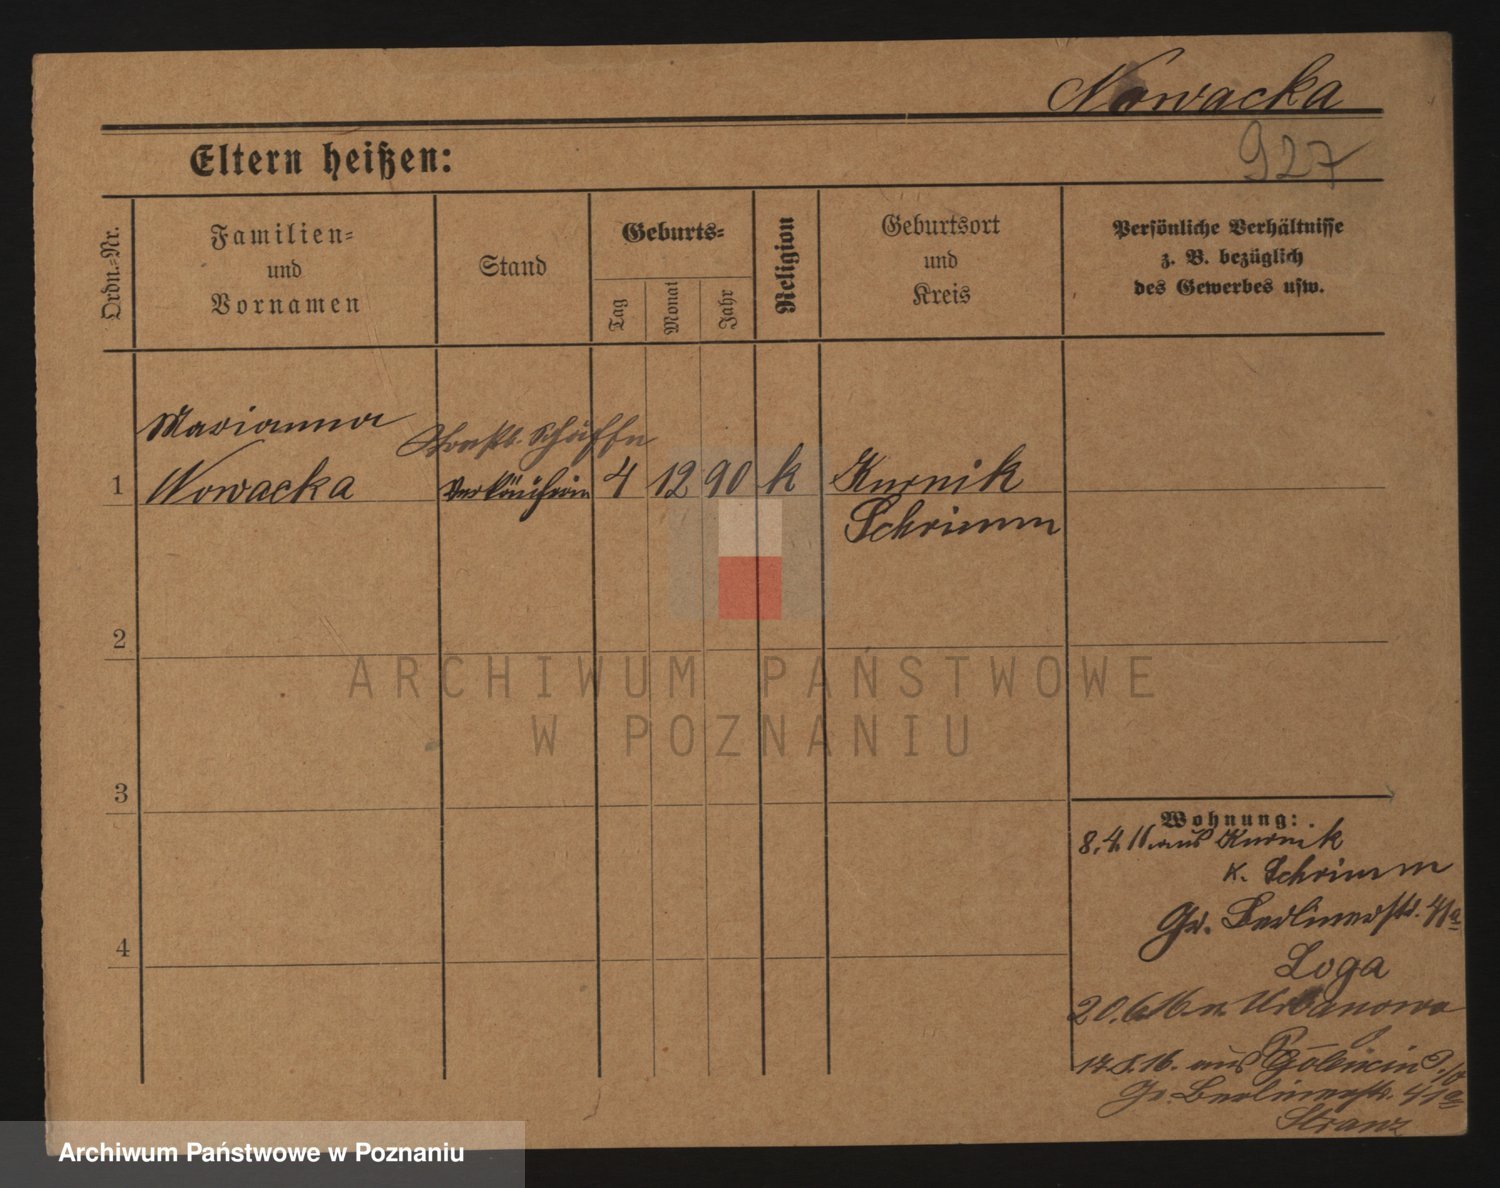 Nowacka
927
Eltern heißen:
Ordn.-Nr.
Familien-
und
Vornamen
Stand
Geburts-
Tag
Monat
Jahr
Religion
Geburtsort
und
Kreis
Persönliche Verhältnisse
z. B. bezüglich
des Gewerbes usw.
Marianna
1 Nowacka Verkäuferin 4 12 90 k Kurnik
Schrimm
2
3
4
Wohnung:
8.4.11. aus Kurnik
K. Schrimm
Gr. Berlinerstr. 41a
Loga
20.6.16. n. Urbanowo
aus
Gr. Berlinerstr. 41a
Stranz
ARCHIWUM PAŃSTWOWE
W POZNANIU
Archiwum Państwowe w Poznaniu